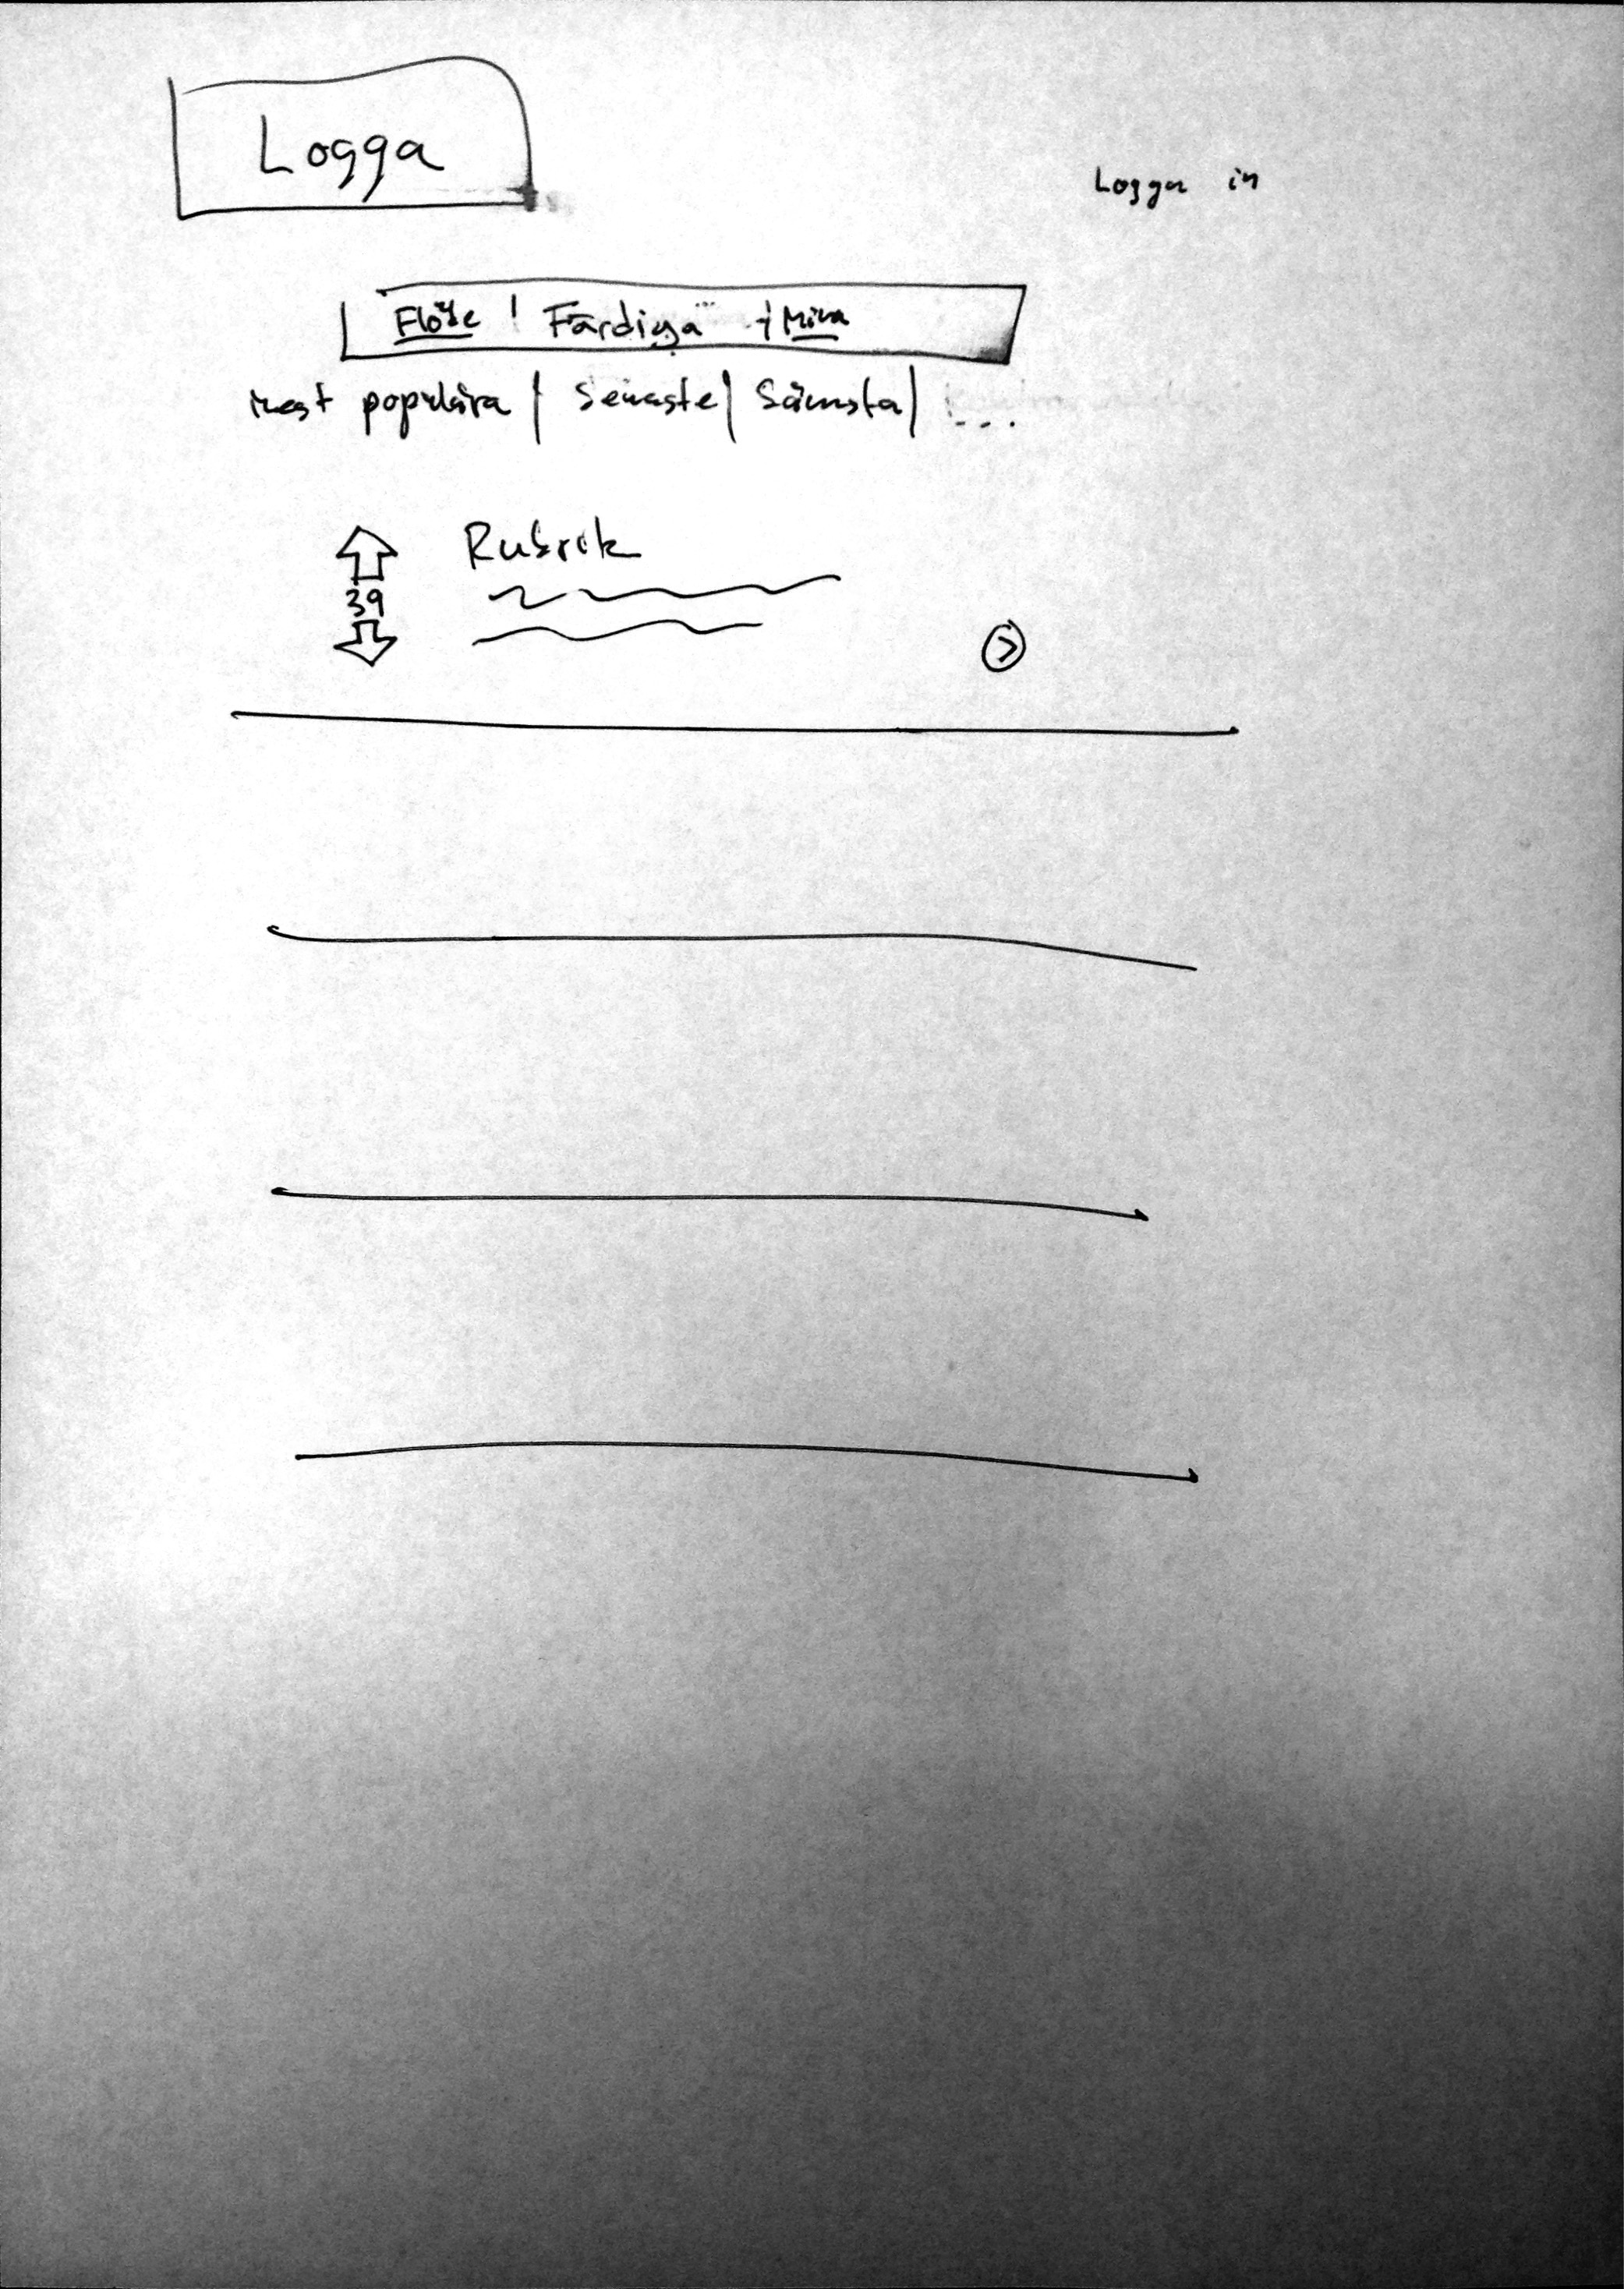 Logga
Logga in
Flöde | Färdiga | Mina
mest populära | Senaste | Sämsta | ...
Rubrik
39